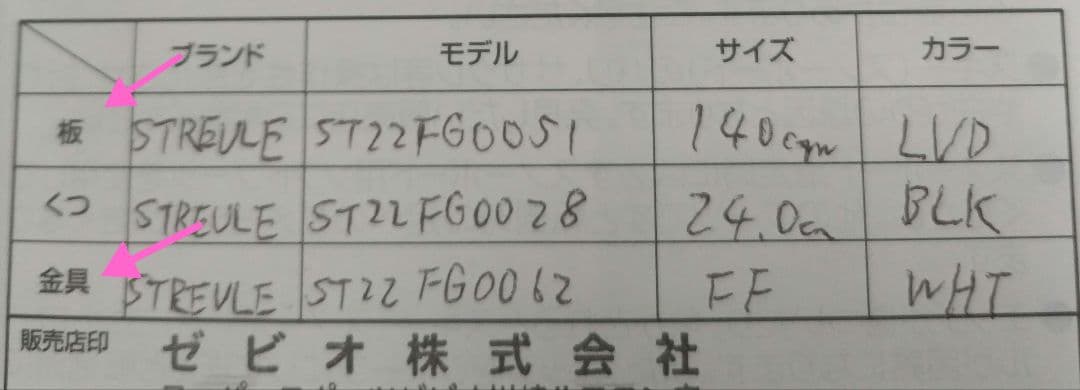 ブランド モデル サイズ カラー
板 STREULE ST22FG0051 140cm LVD
くつ STREULE ST22FG0028 24.0cm BLK
金具 STREULE ST22FG0062 FF WHT
販売店印 ゼビオ株式会社